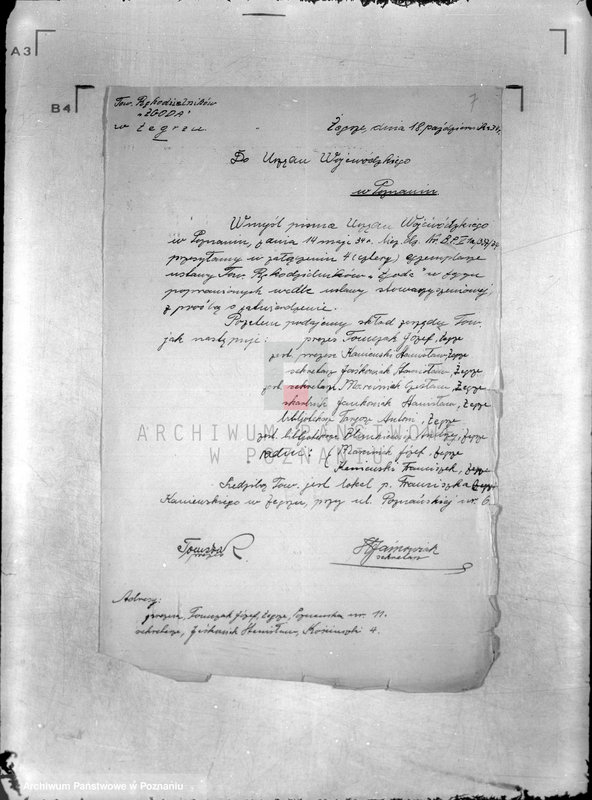 A3
B4
7
Tow. Rękodzielników
"ZGODA"
w Żegrzu
Żegrze, dnia 18 październ. 34.
Do Urzędu Wojewódzkiego
w Poznaniu
W myśl pisma Urzędu Wojewódzkiego
w Poznaniu, z dnia 14 maja 34 r.
przesyłamy w załączeniu 4 (cztery) egzemplarze
ustawy Tow. Rękodzielników "Zgoda" w Żegrzu
poprawionych wedle ustawy stowarzyszeniowej,
z prośbą o zatwierdzenie.
Pozatem podajemy skład zarządu Tow.
jak następuje: prezes Tomczak Józef, Żegrze
zast. prezesa Kaniewski Stanisław, Żegrze
sekretarz Jaśkowiak Stanisław, Żegrze
zast. sekretarza Marciniak Czesław, Żegrze
skarbnik Jankowiak Stanisław, Żegrze
bibliotekarz Antoni, Żegrze
zast. bibliotekarza Żegrze
radni: Marciniak Józef, Żegrze
Kaniewski Franciszek, Żegrze
Siedzibą Tow. jest lokal p. Franciszka
Kaniewskiego w Żegrzu, przy ul. Poznańskiej nr. 6.
Tomczak
prezes
sekretarz
Adresy:
prezesa, Tomczak Józef, Żegrze, nr. 11.
sekretarza, Stanisław, 4.
ARCHIWUM PAŃSTWOWE
W POZNANIU
Archiwum Państwowe w Poznaniu